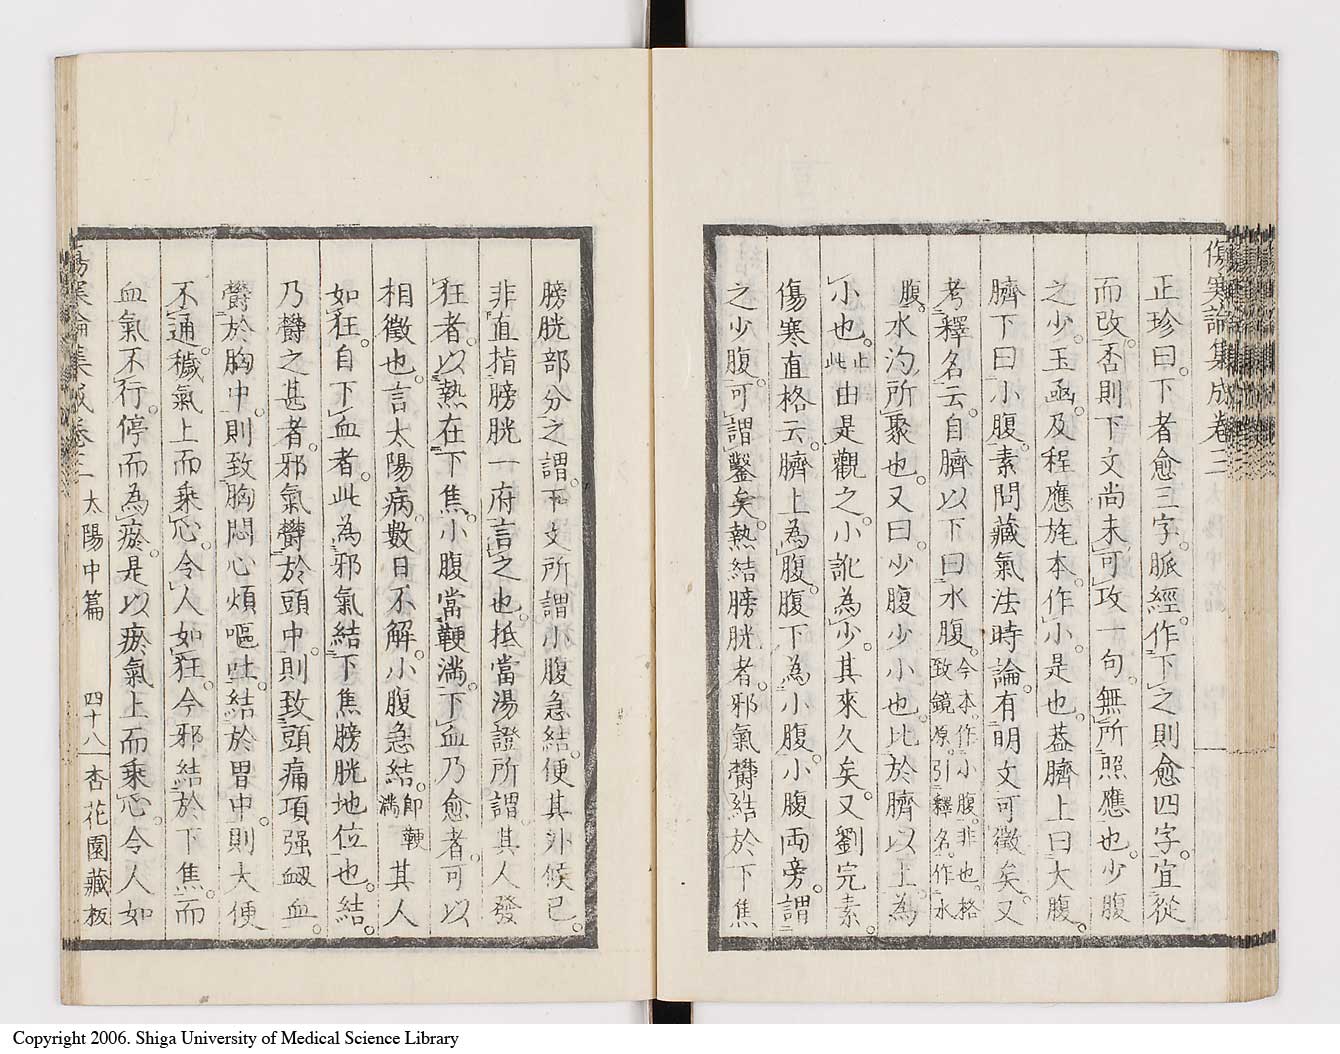 傷寒論集成卷三
正珍曰。下者愈三字。脈經。作下之則愈四字。宜從
而改。否則下文尚未可攻一句。無所照應也。少腹
之少。玉函。及程應旄本。作小。是也。葢臍上曰大腹。
臍下曰小腹。素問藏氣法時論。有明文可徵矣。又
考釋名云。自臍以下曰水腹。今本。作小腹。非也。格致鏡原。引釋名。作水
腹。水汋所聚也。又曰。少腹少小也。比於臍以上。為
小也。止此由是觀之。小訛為少。其來久矣。又劉完素。
傷寒直格云。臍上為腹。腹下為小腹。小腹兩旁。謂
之少腹。可謂鑿矣。熱結膀胱者。邪氣欝結於下焦
膀胱部分之謂。下文所謂小腹急結。便其外候已。
非直指膀胱一府言之也。抵當湯證所謂其人發
狂者。以熱在下焦。小腹當鞕滿。下血乃愈者。可以
相徵也。言太陽病。數日不解。小腹急結。即鞕滿其人
如狂。自下血者。此為邪氣結下焦膀胱地位也。結。
乃欝之甚者。邪氣欝於頭中。則致頭痛項强衂血。
欝於胸中。則致胸悶心煩嘔吐。結於胃中。則大便
不通。穢氣上而乘心。令人如狂。今邪結於下焦。而
血氣不行。停而為瘀。是以瘀氣上而乘心。令人如
傷寒論集成卷三 太陽中篇 四十八 杏花園藏板
Copyright 2006. Shiga University of Medical Science Library